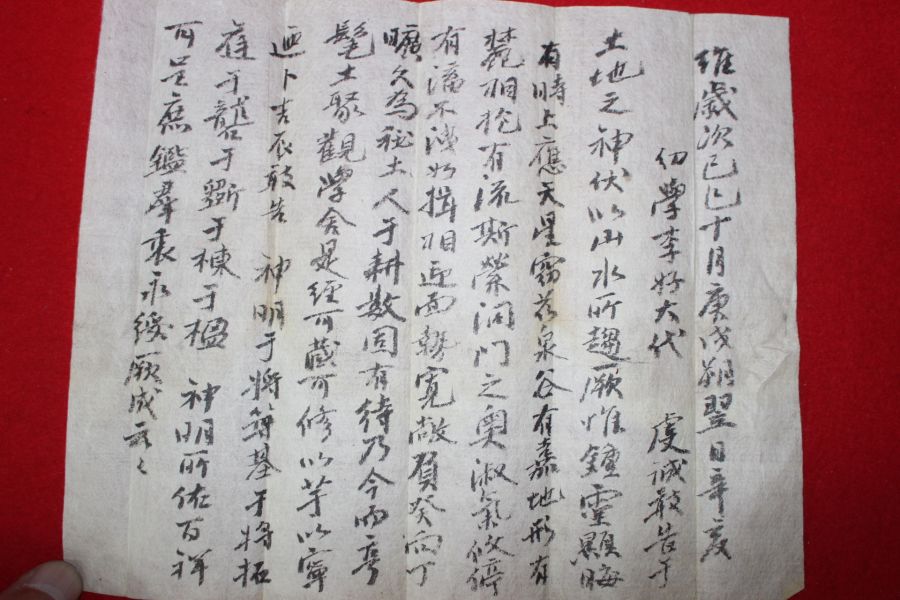 維歲次己巳十月庚戌朔翌日辛亥
幼學李好大代 虔誠敢告于
土地之神伏以山水所趨厥惟鍾靈顯晦
有時上應天星窈茲泉谷有嘉地形有
麓相抱有流斯縈洞門之奧淑氣攸停
有藩不淺如揖相迎面勢寬敞負癸向丁
曠久爲秘土人于耕數固有待乃今而亨
髦士聚觀學舍是經可藏可修以芋以寧
迺卜吉辰敢告 神明于將築基于將拓
蓷于礱于斲于棟于楹 神明所佑百祥
可呈庶鑑羣衷永綏厥成云々